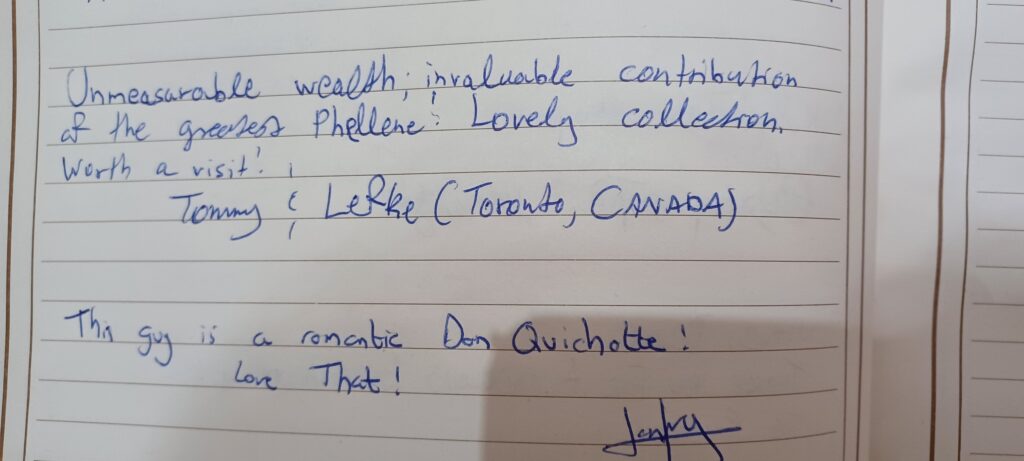 Unmeasurable wealth; invaluable contribution
of the greatest Phellene! Lovely collection.
Worth a visit!
Tommy & Lefke (Toronto, CANADA)
This guy is a romantic Don Quichotte!
Love That!